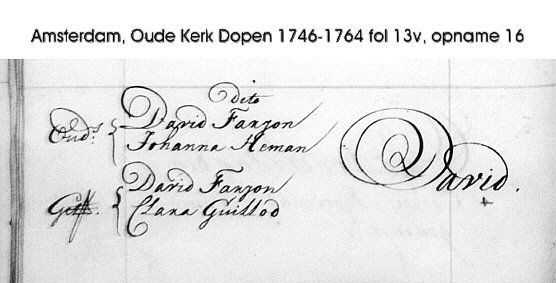 Amsterdam, Oude Kerk Dopen 1746-1764 fol 13v, opname 16
dito
Oud.s { David Fanjon
Johanna Heman
David.
Gett. { David Fanjon
Clara Guillod